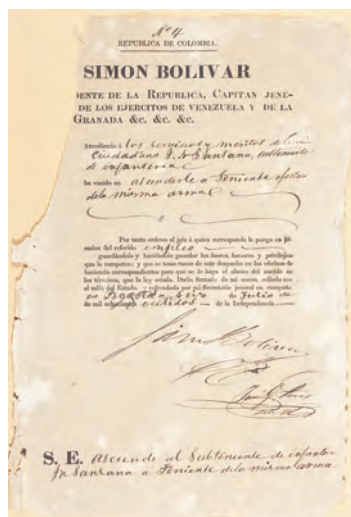 Nº 4
REPUBLICA DE COLOMBIA.
SIMON BOLIVAR
DENTE DE LA REPUBLICA, CAPITAN JENE-
DE LOS EJERCITOS DE VENEZUELA Y DE LA
GRANADA &c. &c. &c.
Atendiendo á los servicios y meritos del
Ciudadano Santana, subteniente
de infanteria
ha venido en ascenderle a Teniente efectivo
dela misma arma
Por tanto ordeno al jefe á quien corresponda le ponga en po-
sesion del referido empleo
guardándole y haciéndole guardar los fueros, honores y privilejios
que le competen; y que se tome razon de este despacho en las oficinas de
hacienda correspondientes para que se le haga el abono del sueldo en
los términos, que la ley señala. Dado, firmado de mi mano, sellado con
el sello del Estado y refrendado por mi Secretario jeneral en
en Bogotá de Julio de
de mil ochocientos de la Independencia
Simon Bolivar
S. E. Asciende al Subteniente de infanteria
Santana a Teniente dela misma arma